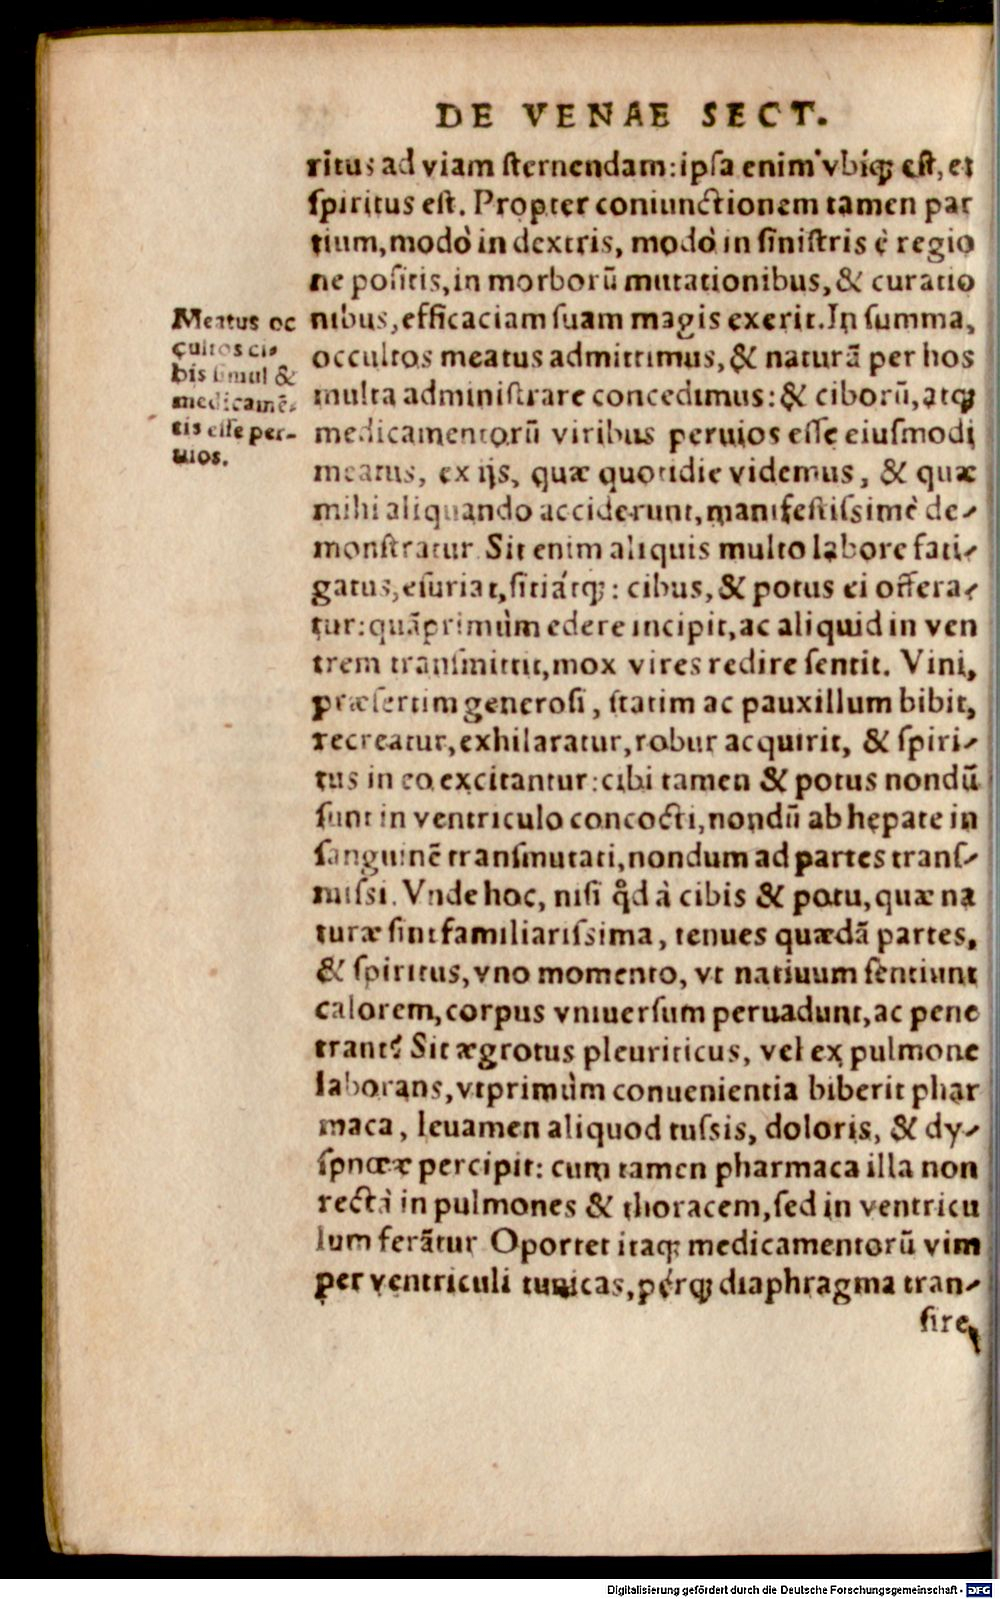 DE VENAE SECT.
ritus ad viam sternendam: ipsa enim vbiq́ꝫ est, et
spiritus est. Propter coniunctionem tamen par
tium, modò in dextris, modò in sinistris è regio
ne positis, in morborū mutationibus, & curatio
nibus, efficaciam suam magis exerit. In summa,
occultos meatus admittimus, & naturā per hos
multa administrare concedimus: & ciborū, atqꝫ
medicamentorū viribus peruios esse eiusmodi
meatus, ex ijs, quæ quotidie videmus, & quæ
mihi aliquando acciderunt, manifestissimè de-
monstratur. Sit enim aliquis multo labore fati-
gatus, esuriat, sitiátqꝫ: cibus, & potus ei offera-
tur: quāprimùm edere incipit, ac aliquid in ven
trem transmittit, mox vires redire sentit. Vini,
præsertim generosi, statim ac pauxillum bibit,
recreatur, exhilaratur, robur acquirit, & spiri-
tus in eo excitantur: cibi tamen & potus nondū
sunt in ventriculo concocti, nondū ab hepate in
sanguinē transmutati, nondum ad partes trans-
missi. Vnde hoc, nisi qd̄ à cibis & potu, quæ na
turæ sint familiarissima, tenues quædā partes,
& spiritus, vno momento, vt natiuum sentiunt
calorem, corpus vniuersum peruadunt, ac pene
trant? Sit ægrotus pleuriticus, vel ex pulmone
laborans, vtprimùm conuenientia biberit phar
maca, leuamen aliquod tussis, doloris, & dy-
spnœæ percipit: cum tamen pharmaca illa non
rectà in pulmones & thoracem, sed in ventricu
lum ferātur. Oportet itaqꝫ medicamentorū vim
per ventriculi tunicas, pérqꝫ diaphragma tran-
sire,
Meatus oc
cultos ci-
bis simul &
medicamē-
tis esse per-
uios.
Digitalisierung gefördert durch die Deutsche Forschungsgemeinschaft - DFG